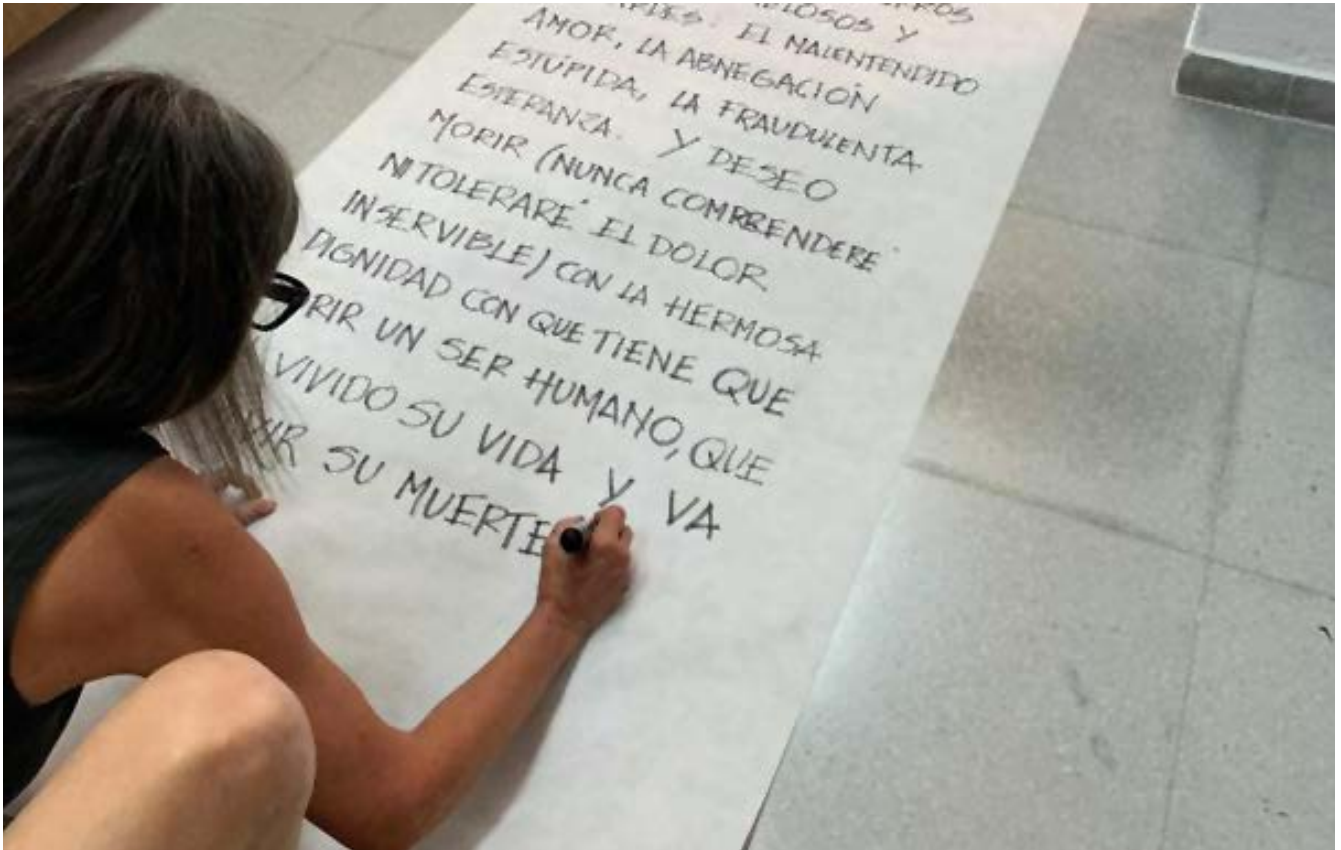 Y
EL MALENTENDIDO
AMOR, LA ABNEGACIÓN
ESTÚPIDA, LA FRAUDULENTA
ESPERANZA. Y DESEO
MORIR (NUNCA COMPRENDERÉ
NI TOLERARÉ EL DOLOR
INSERVIBLE) CON LA HERMOSA
DIGNIDAD CON QUE TIENE QUE
UN SER HUMANO, QUE
VIVIDO SU VIDA Y VA
SU MUERTE